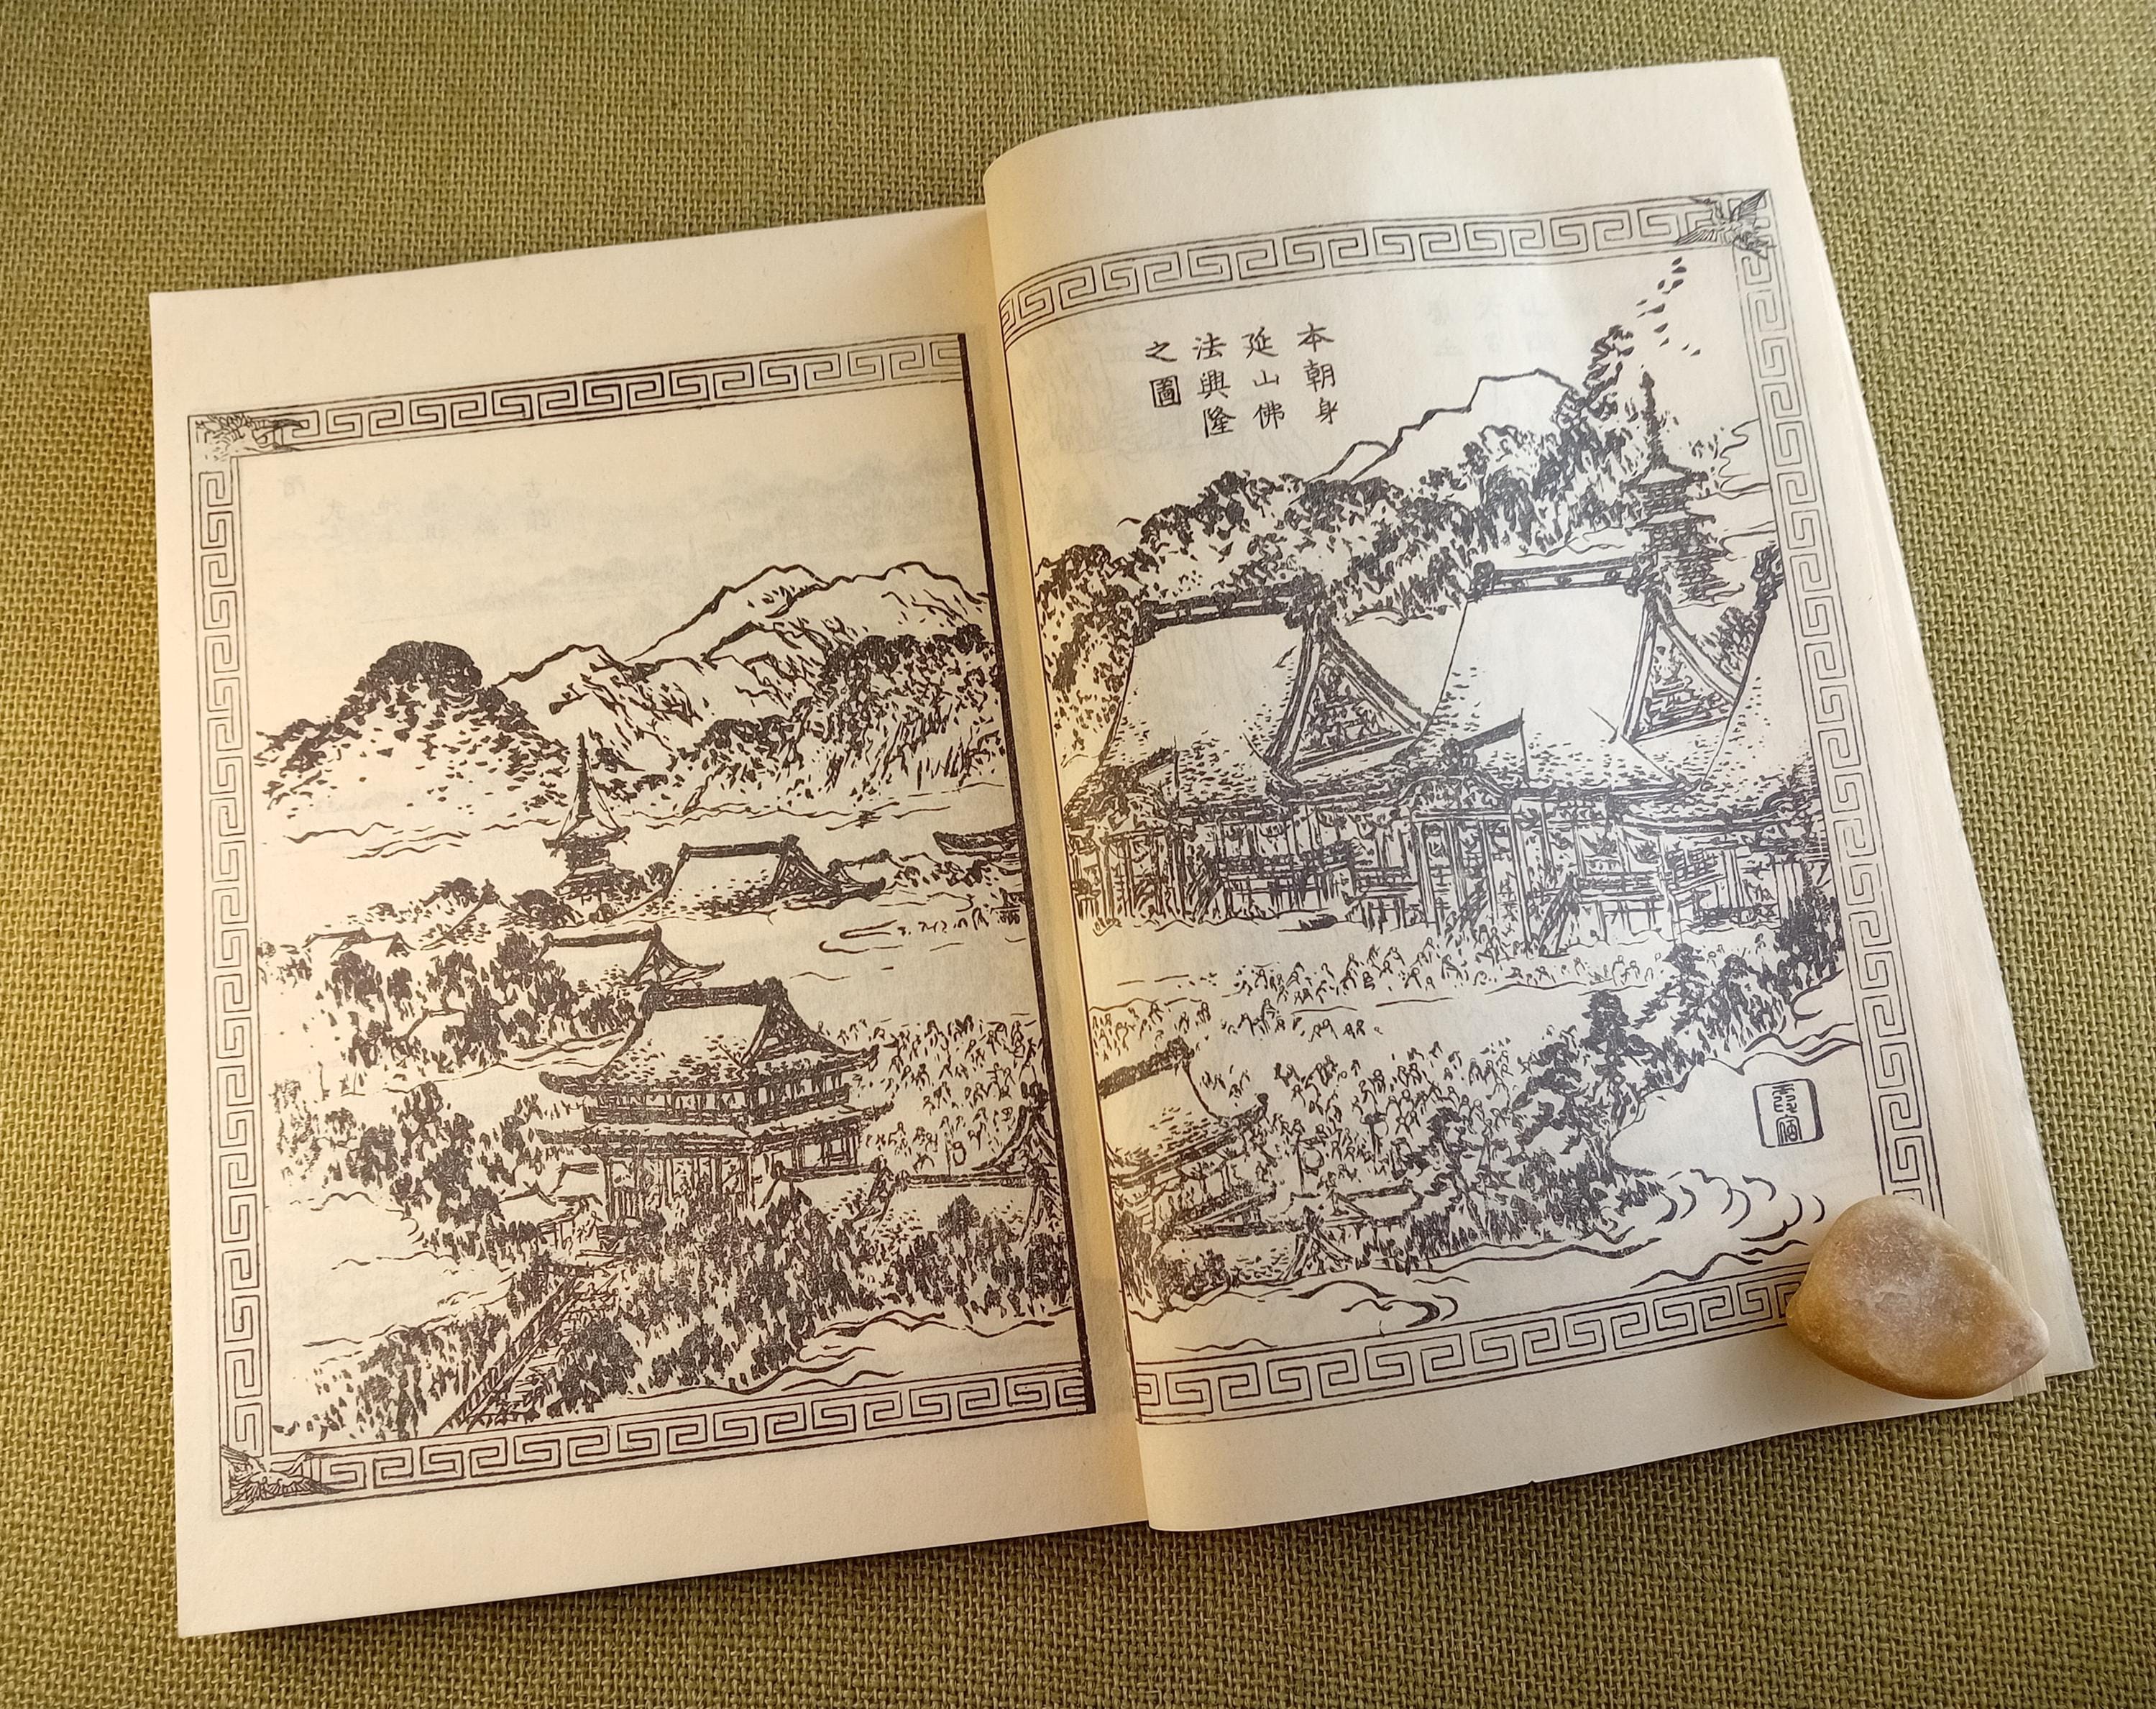 本朝身
延山佛
法興隆
之圖